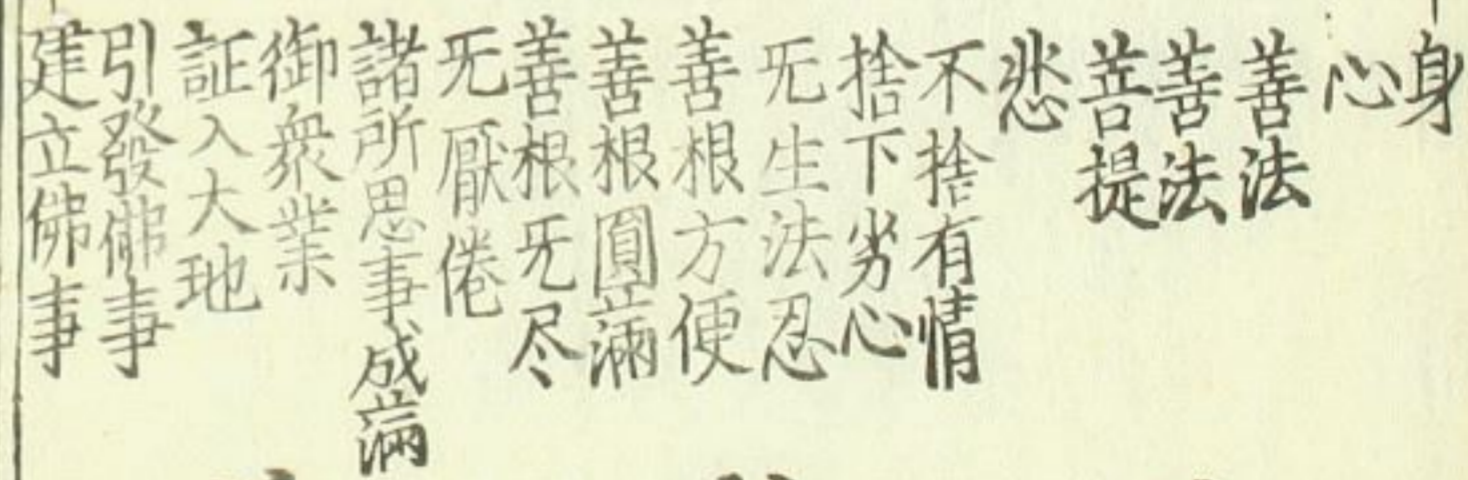 身
心
善法
善法
菩提
悲
不捨有情
捨下劣心
旡生法忍
善根方便
善根圓滿
善根旡尽
旡厭倦
諸所思事成滿
御衆業
証入大地
引發佛事
建立佛事